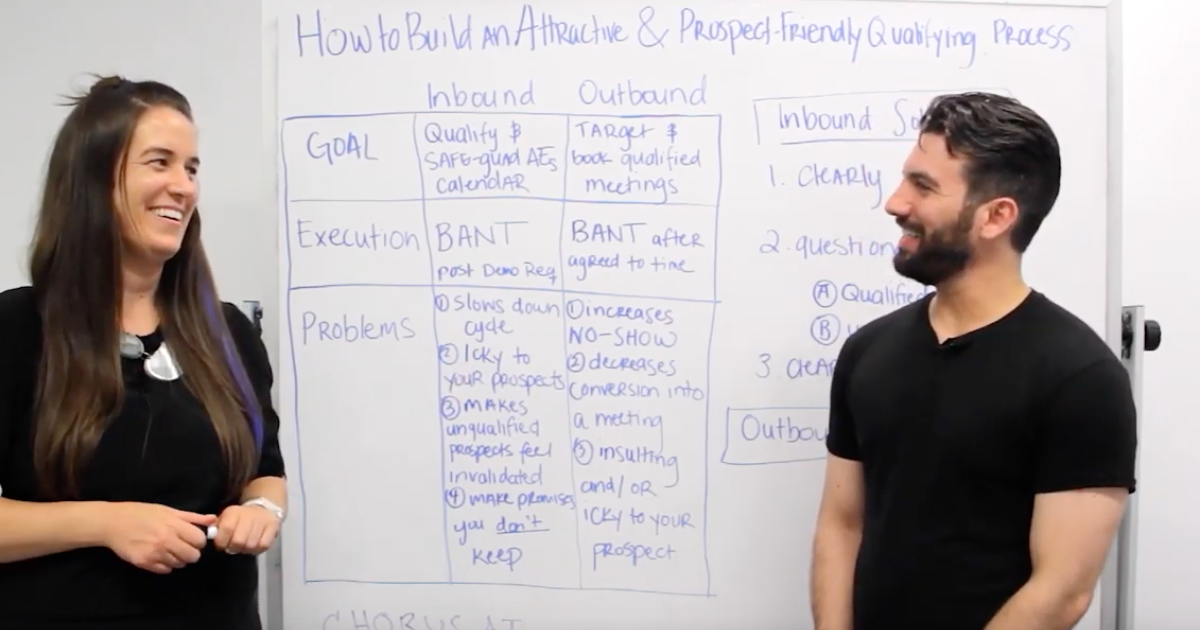 How to Build an Attractive & Prospect-Friendly Qualifying Process
Inbound
Outbound
GOAL
Qualify &
SAFE-guad AEs
calendAR
TARget &
book qualified
meetings
Execution
BANT
post Demo Req
BANT after
agreed to time
Problems
① Slows down
cycle
② Icky to
YOUR prospects
③ MAKES
unqualified
prospects feel
invalidated
④ make promises
you don't
keep
① increases
NO-SHOW
② decreases
conversion into
a meeting
③ insulting
and/OR
ICKY to YOUR
prospect
Inbound
1. CleARly
2. question
Ⓐ Qualified
Ⓑ
3.
CHORUS AI